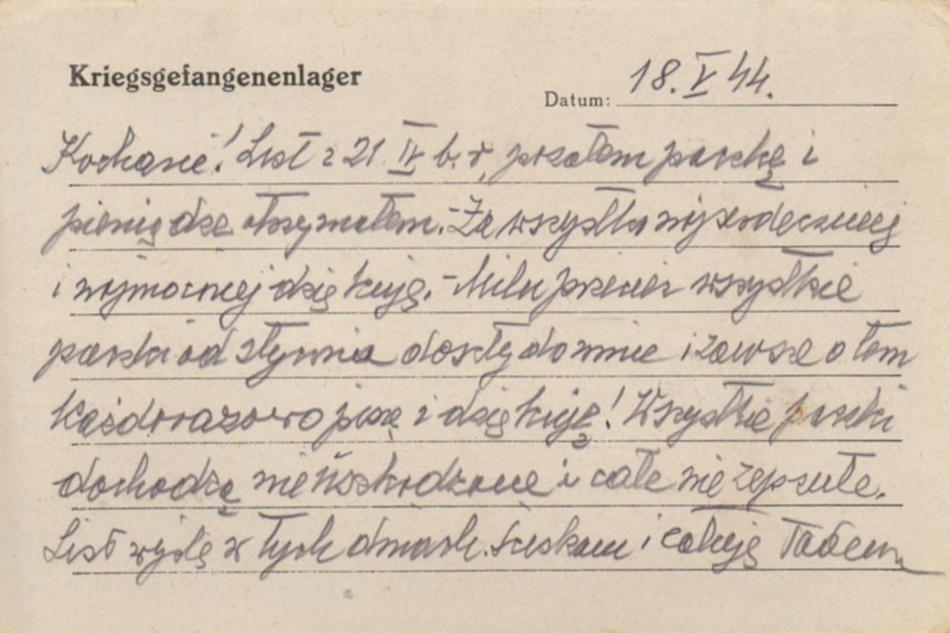 Kriegsgefangenenlager
Datum: 18. V 44.
Kochanie! List z 21 IV b. r, przetem paczkę i
pieniądze otrzymałem. - Za wszystko najserdeczniej
i najmocniej dziękuję. - wszystkie
paczki od stycznia doszły do mnie i zawsze o tem
każdorazowo piszę i dziękuję! Wszystkie paczki
dochodzą nieuszkodzone i całe nie zepsute.
List wyślę w tych dniach. Ściskam i całuję